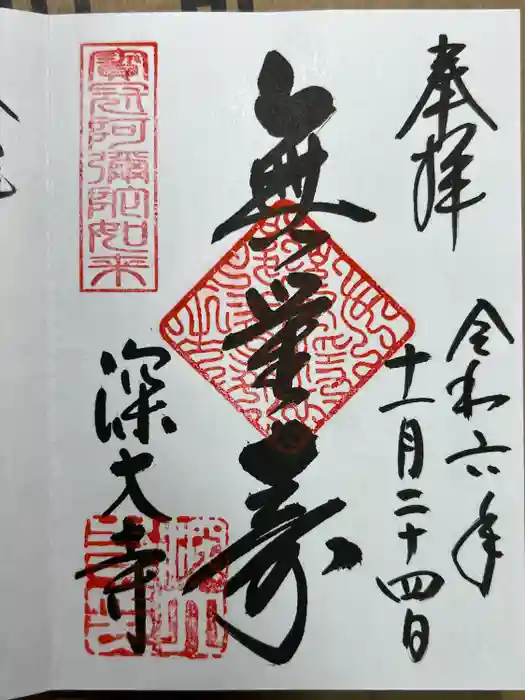 奉拝
令和六年
十一月二十四日
無量寿
寳冠阿彌陀如来
深大寺